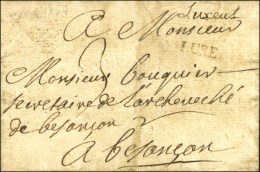 Luxeul
A Monsieur
LURE
Monsieur bouquier
secretaire de l'archeveché
de besançon
A besançon